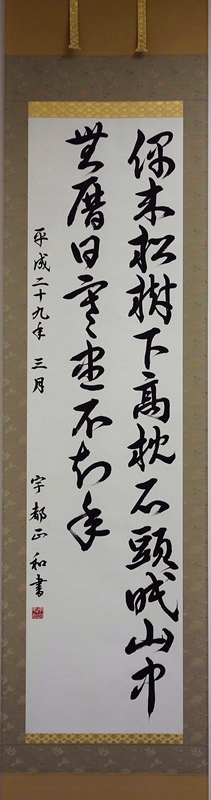 偶来松樹下高枕石頭眠山中
無暦日寒盡不知年
平成二十九年 三月 宇都正和書